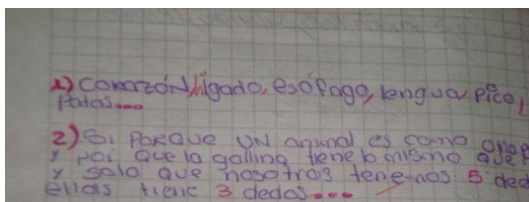 1) Corazón, higado, esófago, lengua, pico,
Patas...
2) Si Porque UN animal es como
y por que la gallina tiene lo mismo que
y solo que nosotros tenemos 5 ded
ellas tiene 3 dedos...